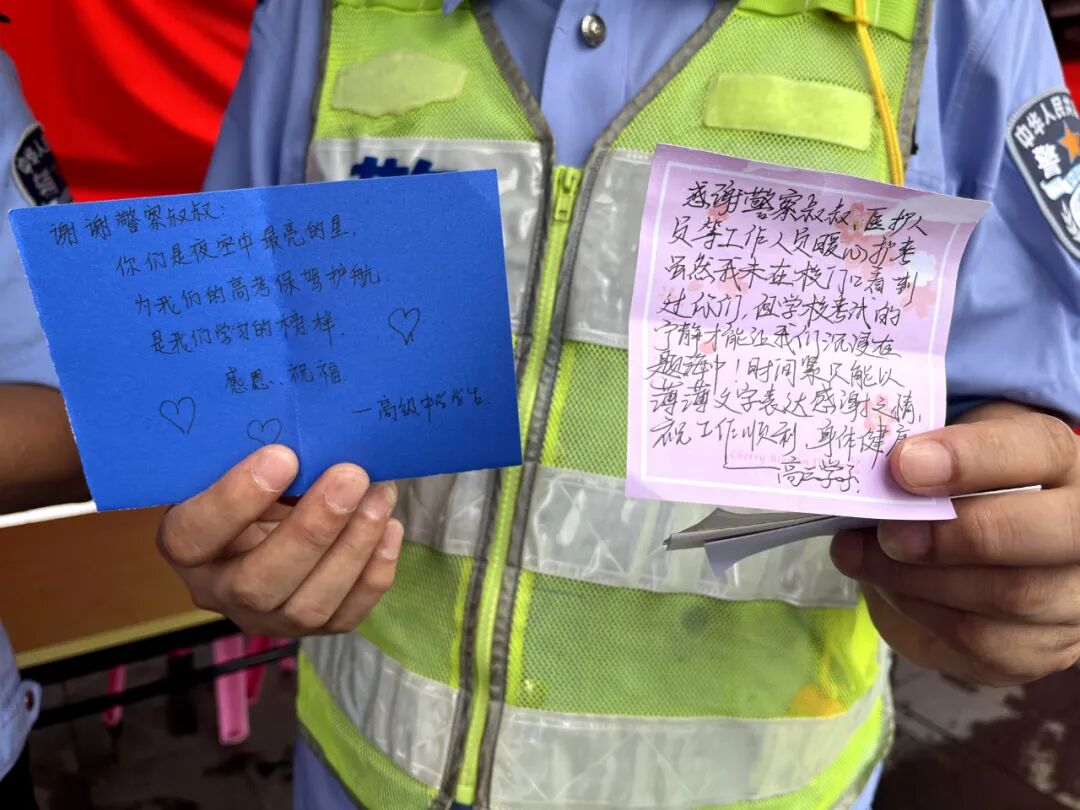 谢谢警察叔叔：
你们是夜空中最亮的星，
为我们的高考保驾护航
是我们学习的榜样．
感恩、祝福．
—高级中学学生．
感谢警察叔叔、医护人
员等工作人员暖心护考
虽然我未在校门口看到
过你们，但学校考试的
宁静才能让我们沉浸在
题海中！时间紧只能以
薄薄文字表达感谢之情，
祝工作顺利，身体健康
——高三学子．
中华人民共
警